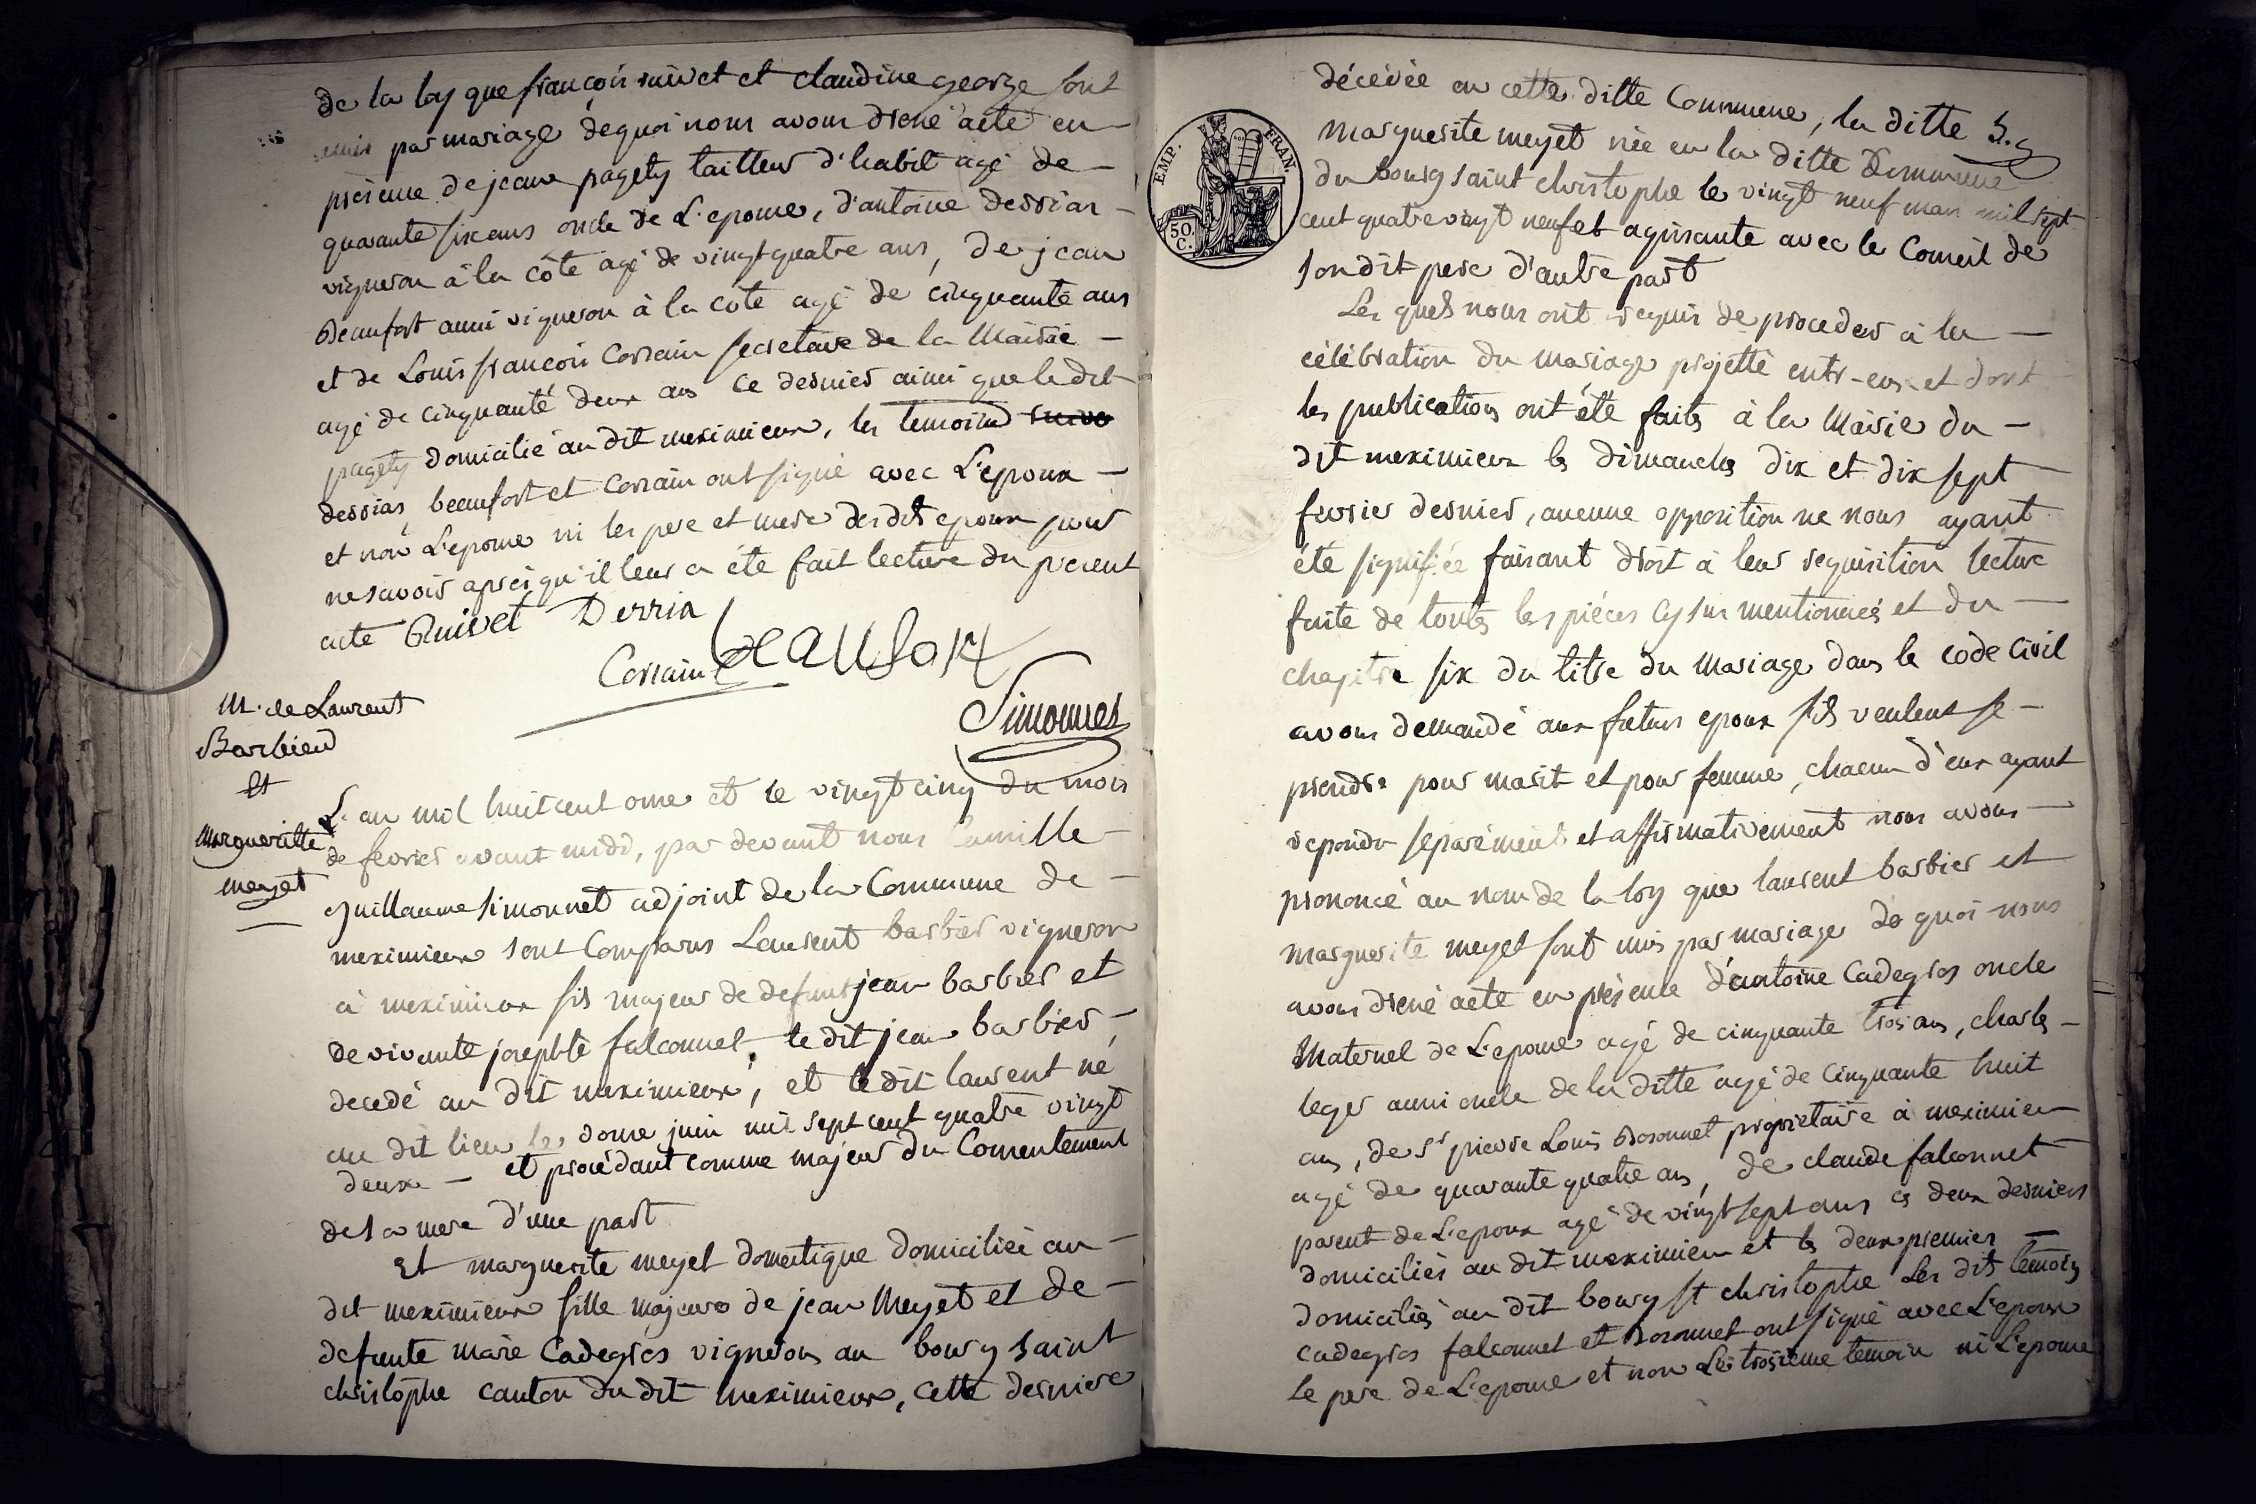 de la loy que françois ruivet et claudine george sont
unis par mariage dequoi nous avons dréné acte en
présence de jean pagety tailleur d'habit agé de
quarante six ans oncle de L'epouse, d'antoine derriar
vigneron à la côte agé de vingt quatre ans, de jean
Beaufort aussi vigneron à la côte agé de cinquante ans
et de Louis françois Corrain secretaire de la Mairie
agé de cinquante deux ans ce dernier ainsi que le dit
pagety domicilié au dit meximieux, les temoins
derriar beaufort et Corrain ont signé avec L'epoux
et non L'epouse ni les pere et mere des dits epoux pour
ne savoir après qu'il leur a été fait lecture du présent
acte Ruivet Derria
Corrain Beaufort
Simonnet
M. de Laurent
Barbier
Et
Margueritte
meyet
L'an mil huit cent onze et le vingt cinq du mois
de fevrier avant midi, par devant nous Camille
Guillaume simonnet adjoint de la Commune de
meximieux sont Comparus Laurent barbier vigneron
à meximieux fils majeur de defunt jean barbier et
de vivante josephte falconnet, le dit jean barbier
decedé au dit meximieux, et le dit laurent né
au dit lieu le douze juin mil sept cent quatre vingt
deux — et procédant comme majeur du Consentement
de sa mere d'une part
Et marguerite meyet domestique domiciliée au
dit meximieux fille majeure de jean Meyet et de
defunte marie Cadegros vignerons au bourg saint
christophe canton du dit meximieux, cette derniere
décédée en cette ditte Commune, la ditte
EMP. FRAN.
50.
C.
Marguerite meyet née en la ditte Commune
du bourg saint christophe le vingt neuf mars mil sept
cent quatre vingt neuf et agissante avec le Conseil de
son dit pere d'autre part
Les quels nous ont requis de proceder à la
célébration du mariage projetté entr-eux et dont
les publications ont été faites à la Mairie du
dit meximieux les dimanches dix et dix sept
fevrier dernier, aucune opposition ne nous ayant
été signifiée faisant droit à leur requisition lecture
faite de toutes les pièces cy sus mentionnées et du
chapitre six du titre du Mariage dans le code Civil
avons demandé aux futurs epoux s'ils veulent se
prendre pour marit et pour femme, chacun d'eux ayant
repondu séparément et affirmativement nous avons
prononcé au nom de la loy que laurent barbier et
marguerite meyet sont unis par mariage de quoi nous
avons dréné acte en présence d'antoine Cadegros oncle
Maternel de L'epouse agé de cinquante trois ans, charles
leger aussi oncle de la ditte agé de Cinquante huit
ans, de Sr pierre Louis Bosonnet proprietaire à meximieux
agé de quarante quatre ans, de claude falconnet
parent de L'epoux agé de vingt sept ans ces deux derniers
domiciliés au dit meximieux et les deux premiers
domiciliés au dit bourg St christophe Les dits temoins
cadegros falconnet et Bosonnet ont signé avec L'epoux
le pere de L'epouse et non le troisieme temoin ni L'epouse